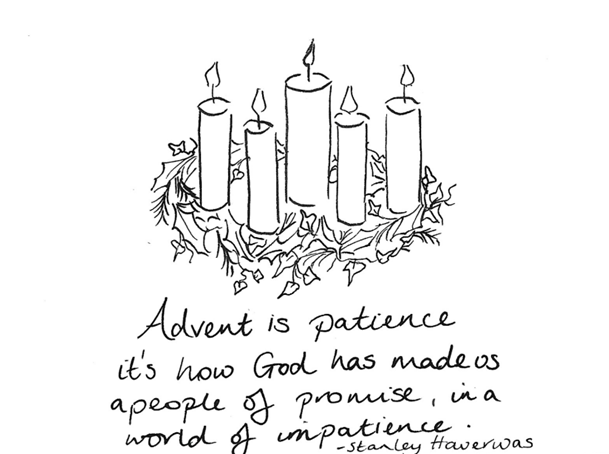 Advent is patience
it's how God has made us
a people of promise, in a
world of impatience.
-Stanley Haverwas